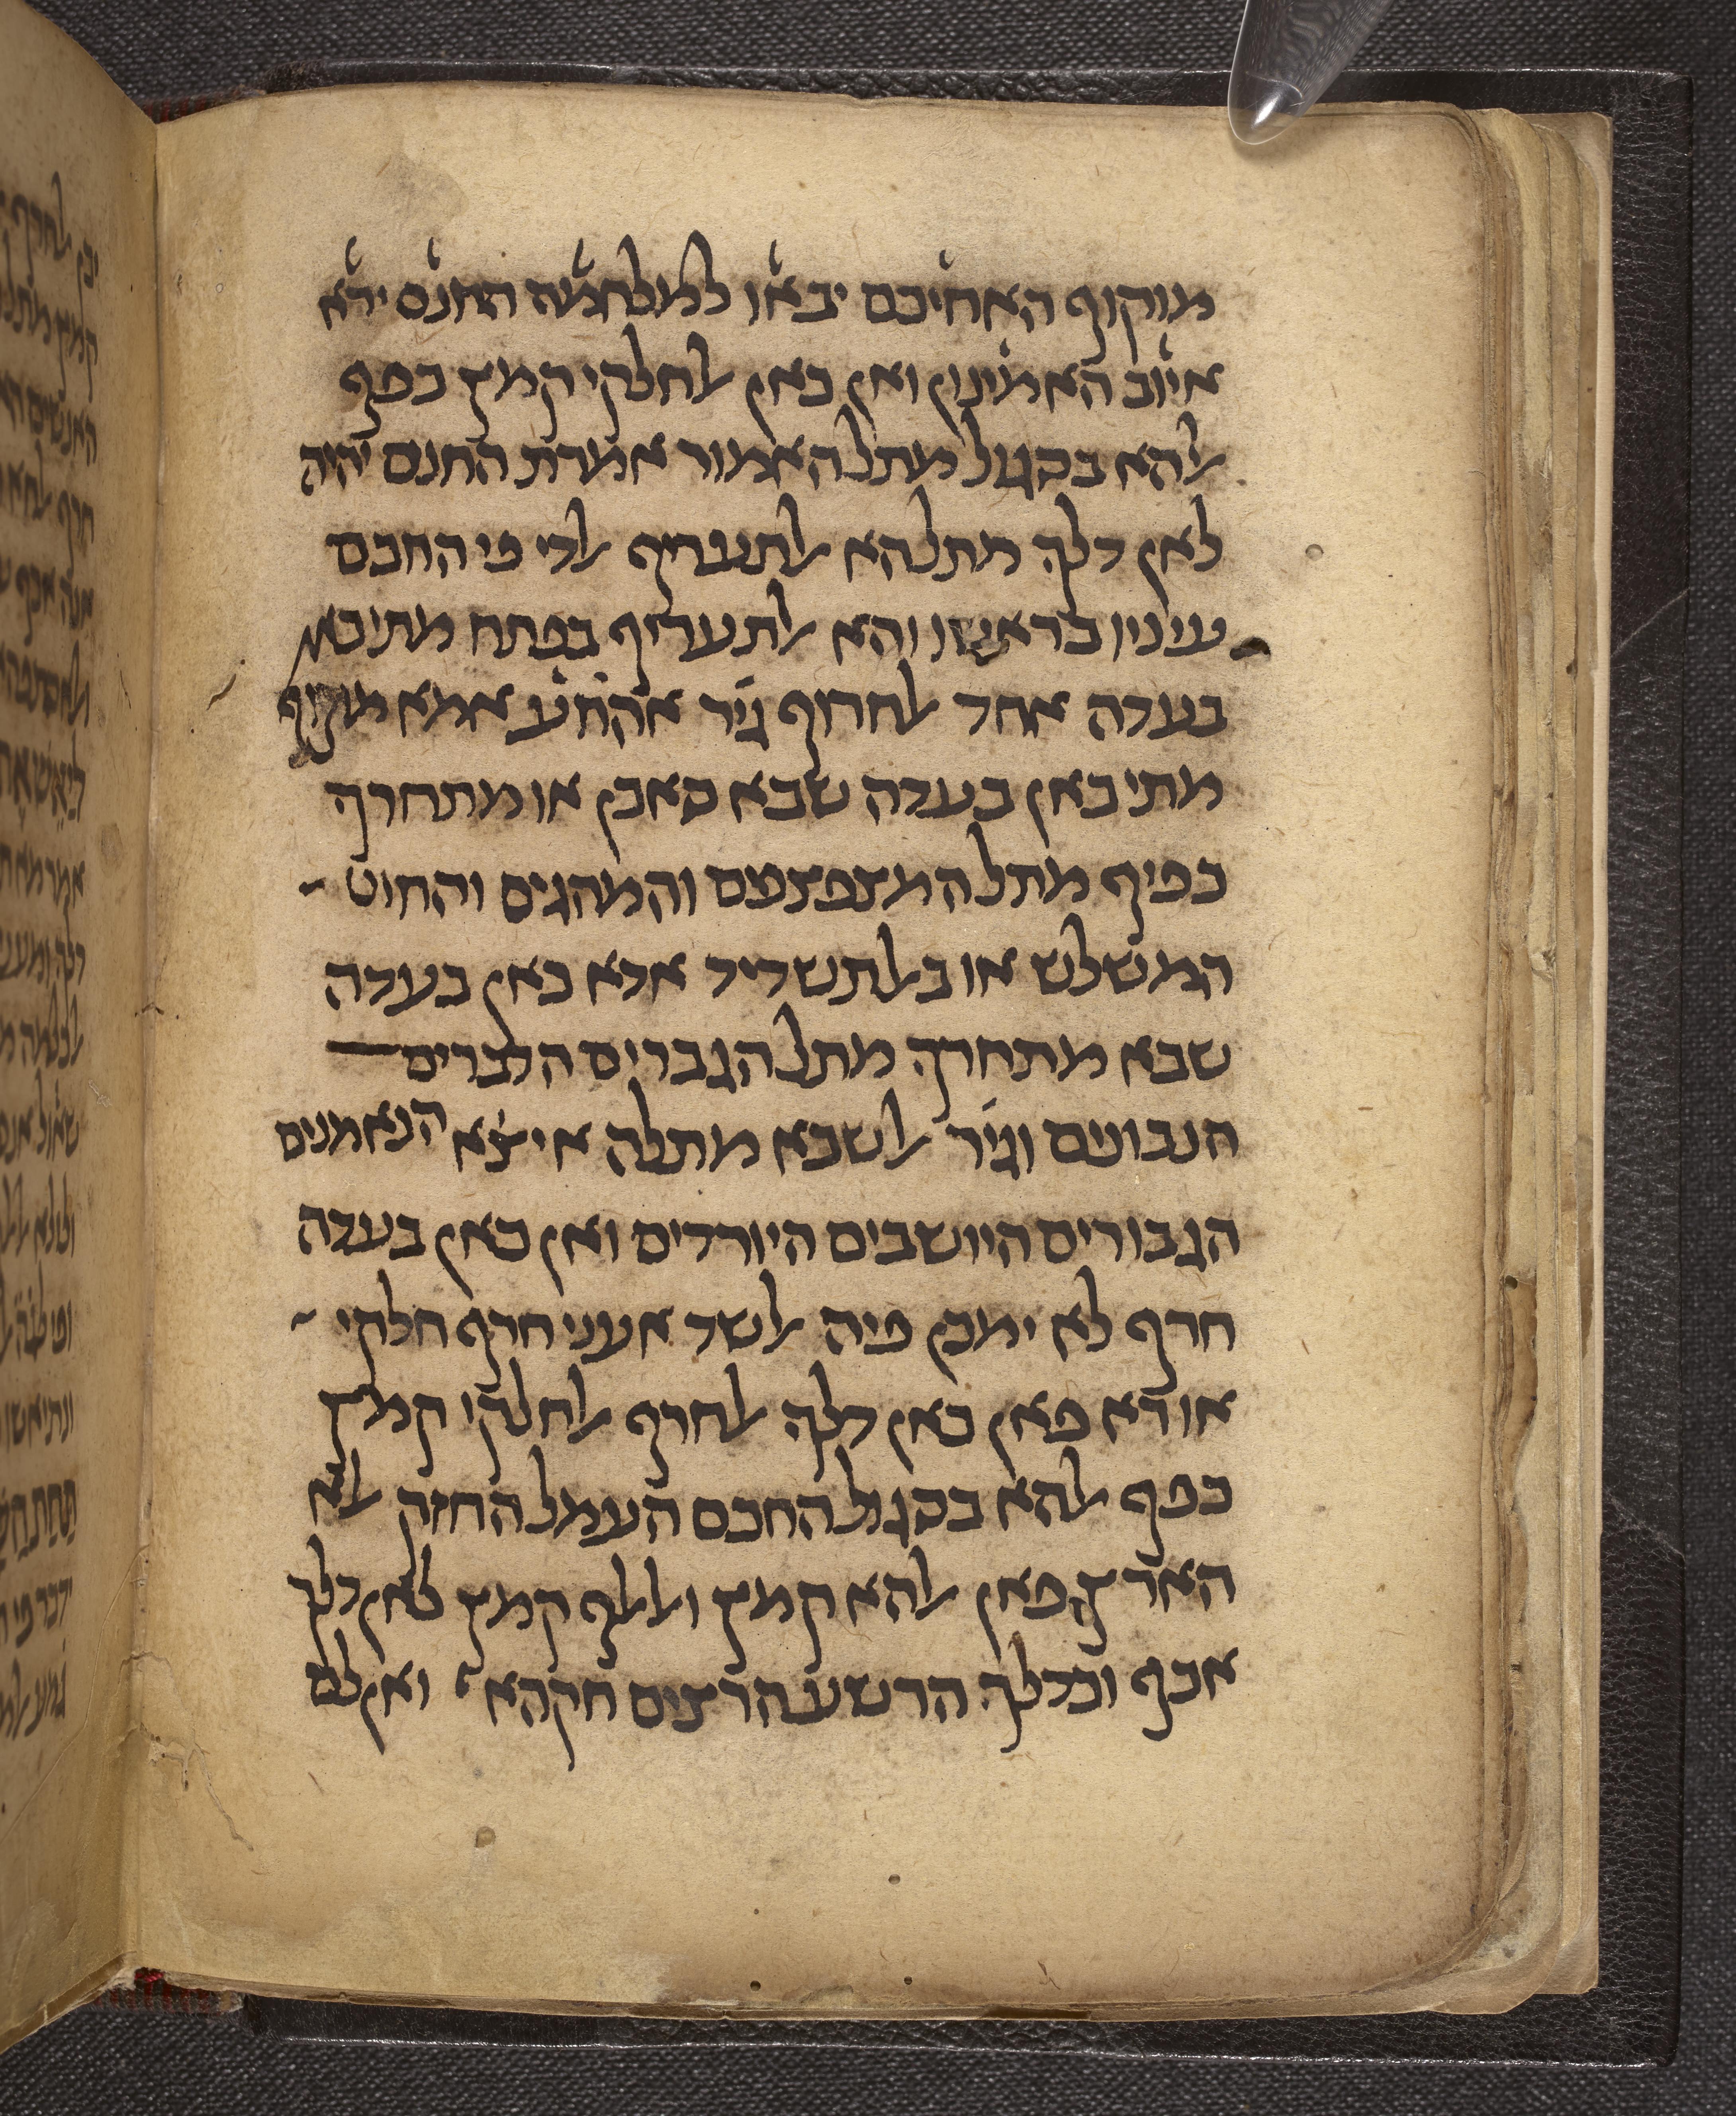 מוקוף האחיכם יבאו למלחמה החנם ירא
איוב האמינון ואן כאן אלחלקי קמץ כפף
אלהא בסגול מתל האמור אמרת החנם יהיה
לאן דלך מתלהא אלתעריף אלדי פי החכם
עיניו בראשו והא אלתעריף בפתח מתי כאן
בעדה אחד אלחרוף גיר אהחע אמא מוקוף
מתי כאן בעדה שבא סאכן או מתחרך
כפיף מתל המצפצפים והמהגים והחוט
המשלש או באלתשדיד אדא כאן בעדה
שבא מתחרך מתל הגברים הדברים
הנבונים וגיר אלשבא מתלה איצא הנאמנים
הגבורים היושבים היורדים ואן כאן בעדה
חרף לא ימכן פיה אלשד אעני חרף חלקי
או רא פאן כאן דלך אלחרף אלחלקי קמץ
כפף אלהא בסגול החכם העמל החזק אלא
הארץ פאן אלהא קמץ ואלאלף קמץ לאן דלך
אכף וכדלך הרשע הרצים חקהא ואן לם